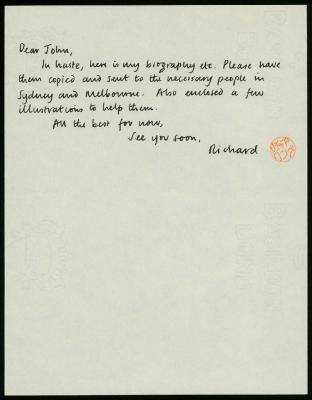 Dear John,
In haste, here is my biography etc. Please have
them copied and sent to the necessary people in
Sydney and Melbourne. Also enclosed a few
illustrations to help them.
All the best for now,
See you soon,
Richard